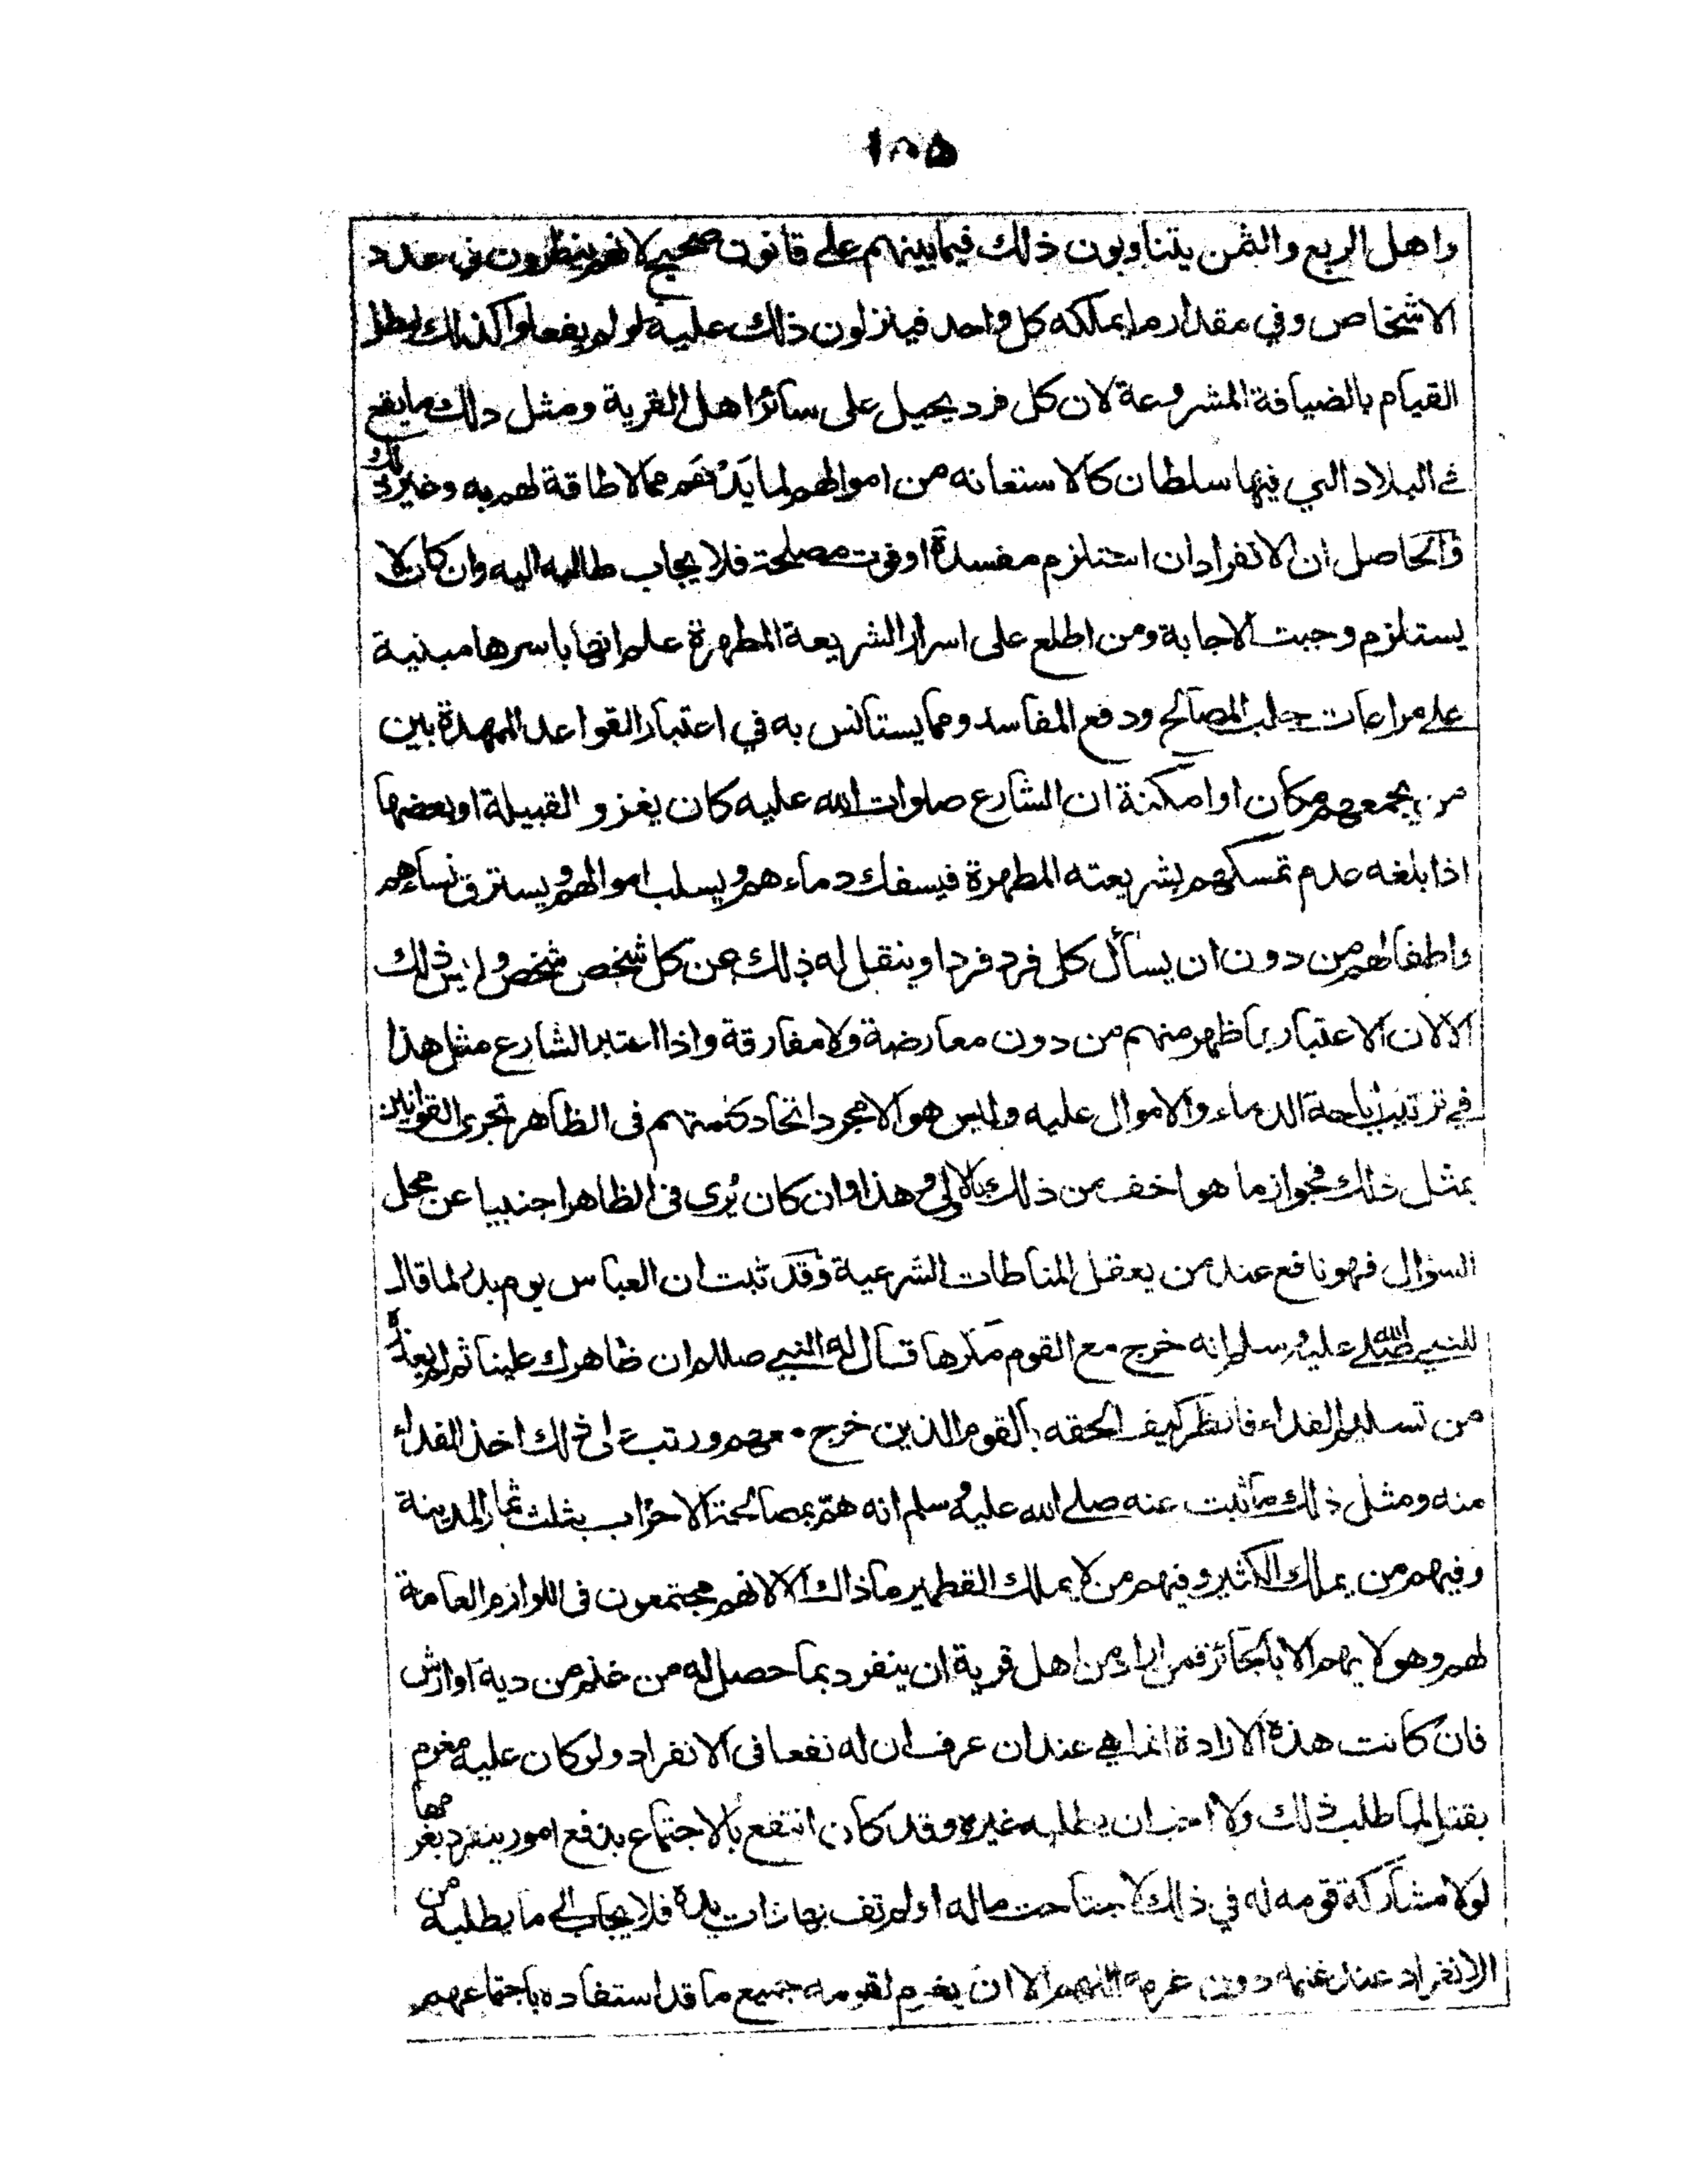 ١٨٥
واهل الربع والثمن يتناوبون ذلك فيما بينهم على قانون صحيح لانهم ينظرون في عدد
الاشخاص وفي مقدار ما يملكه كل واحد فينزلون ذلك عليه ولو لم يفعلوا كذلك لبطل
القيام بالضيافة المشروعة لان كل فرد يحيل على سائر اهل القرية ومثل ذلك ما يقع
في البلاد التي فيها سلطان كالاستعانه من اموالهم لما يدهمهم مما لا طاقة لهم به وغير ذلك
والحاصل ان الانفراد ان استلزم مفسدة او فوت مصلحة فلا يجاب طالبه اليه وان كان لا
يستلزم وجبت الاجابة ومن اطلع على اسرار الشريعة المطهرة علم انها باسرها مبنية
على مراعات جلب المصالح ودفع المفاسد ومما يستانس به في اعتبار القواعد الممهدة بين
من يجمعهم مكان او امكنة ان الشارع صلوات الله عليه كان يغزو القبيلة او بعضها
اذا بلغه عدم تمسكهم بشريعته المطهرة فيسفك دماءهم ويسلب اموالهم ويسترق نساءهم
واطفالهم من دون ان يسأل كل فرد فردا وينقل له ذلك عن كل شخص شخص وليس ذلك
الا لان الاعتبار بما ظهر منهم من دون معارضة ولا مفارقة واذا اعتبر الشارع مثل هذا
في ترتيب اباحة الدماء والاموال عليه وليس هو الا مجرد اتحاد كلمتهم في الظاهر تجرى القوانين
بمثل ذلك فجواز ما هو اخف من ذلك بالاولى وهذا وان كان يُرى في الظاهر اجنبيا عن محل
السؤال فهو نافع عند من يعقل المناطات الشرعية وقد ثبت ان العباس يوم بدر لما قال
للنبي صلى الله عليه وسلم انه خرج مع القوم مكرها قال له النبي صللم ان ظاهرك علينا ثم لم يعذره
من تسليم الفداء فانظر كيف الحقه بالقوم الذين خرج معهم ورتب على ذلك اخذ الفداء
منه ومثل ذلك ما ثبت عنه صلى الله عليه وسلم انه هم بمصالحة الاحزاب بثلث ثمار المدينة
وفيهم من يملك الكثير وفيهم من لا يملك القطمير ما ذاك الا لانهم مجتمعون في اللوازم العامة
لهم وهو لا يهم الا بالجائز فمن اراد من اهل قرية ان ينفرد بما حصل له من غنم من دية او ارش
فان كانت هذه الارادة انما هي عند ان عرف ان له نفعا في الانفراد ولو كان عليه مغرم
بقتل لما طلب ذلك ولا احب ان يطلبه غيره وقد كان انتفع بالاجتماع بدفع امور ينفرد بغرمها
لولا مشاركة قومه له في ذلك لاجتاحت ماله او لم تف بها ذات يده فلا يجاب الى ما يطلبه من
الانفراد عند غنمه دون غرمه اللهم الا ان يغرم لقومه جميع ما قد استفاده باجتماعهم